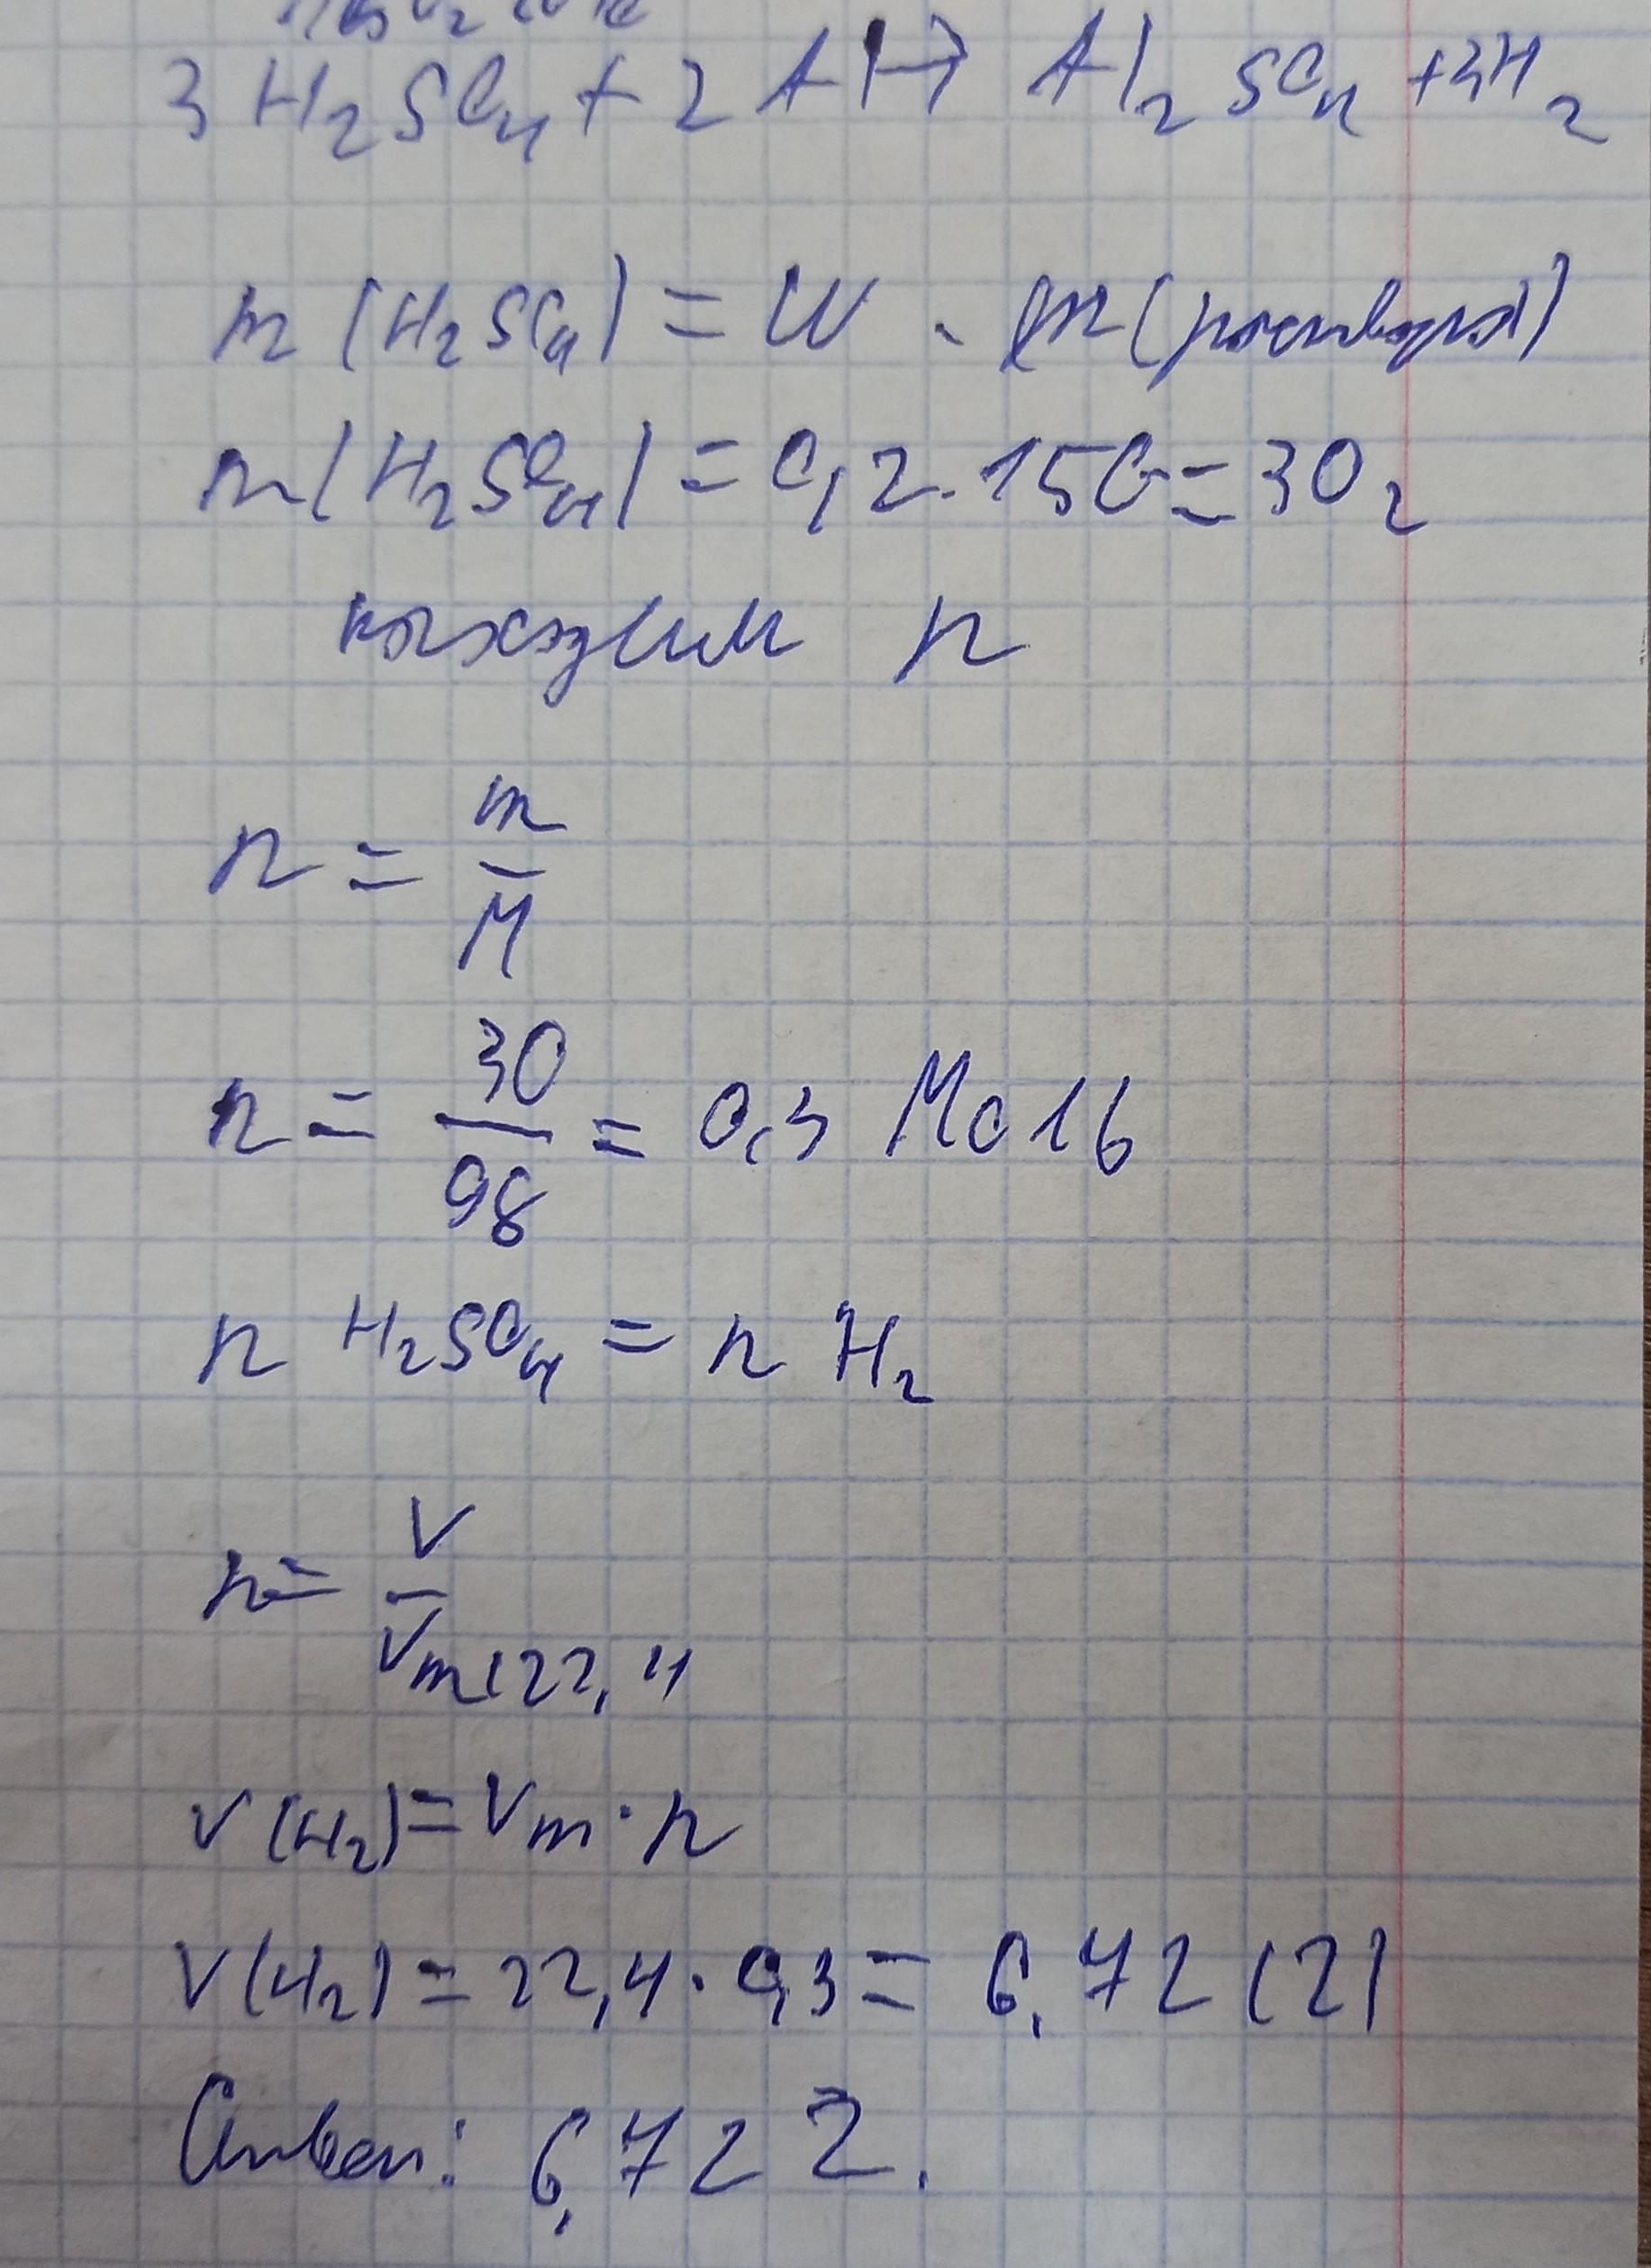 3 H₂SO₄ + 2 Al → Al₂ SO₄ + 3H₂
m (H₂SO₄) = W · m (раствора)
m (H₂SO₄) = 0,2 · 150 = 30 г
находим n
n = m/M
n = 30/98 = 0,3 Моль
n H₂SO₄ = n H₂
n = V/Vm (22,4
V (H₂) = Vm · n
V (H₂) = 22,4 · 0,3 = 6,72 (г)
Ответ: 6,72 г.